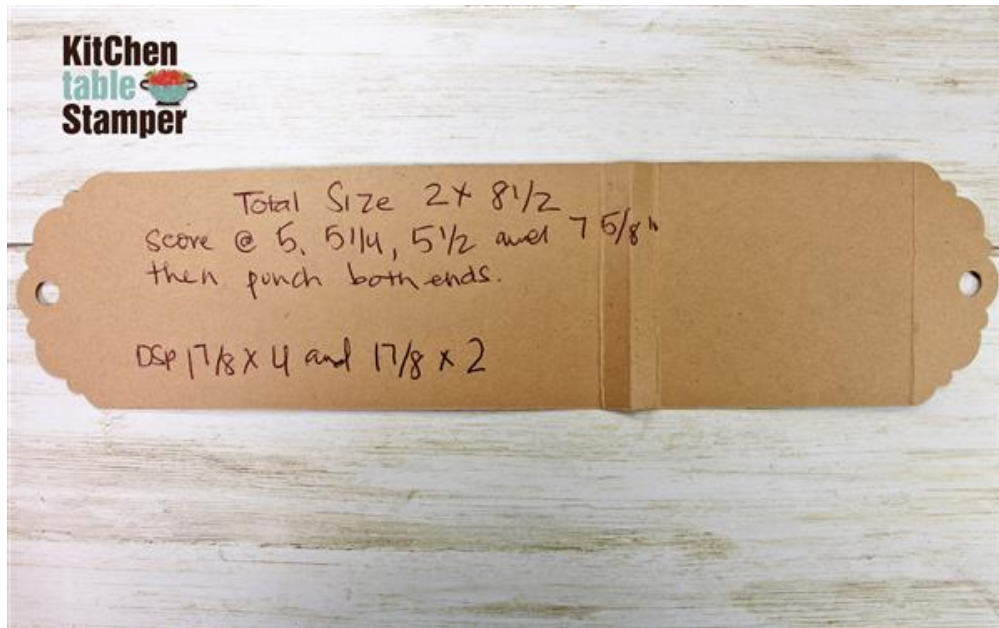 KitChen
table
Stamper
Total Size 2x 8 1/2
Score @ 5, 5 1/4, 5 1/2 and 7 5/8"
then punch both ends.
DSP 1 7/8 x 4 and 1 7/8 x 2